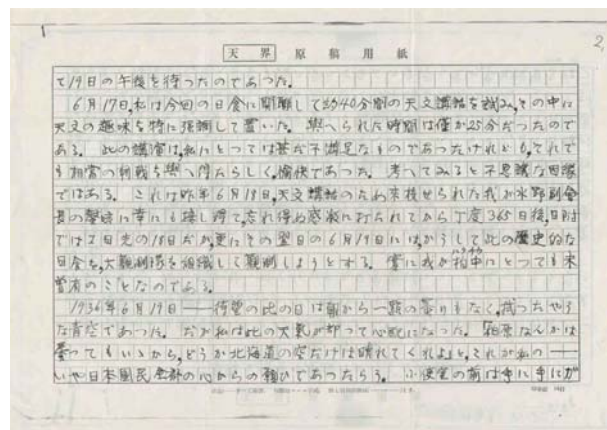 2,
天界 原稿用紙
て19日の午後を待つたのであつた。
6月17日,私は今回の日食に関聯して約40分間の天文講話を試み,その中に
天文の趣味を特に強調して置いた。与へられた時間は僅か25分だつたので
ある。此の講演は,私にとつては甚だ不満足なものであつたけれども,それで
も相当の刺戟を与へ得たらしく,愉快であつた。考へてみると不思議な因縁
ではある。これは昨年6月18日,天文講話のため来校せられた我が水野副会
長の謦咳に幸にも接し得て,忘れ得ぬ感激に打たれてから丁度365日後,日附
では2日先の18日だが,更にその翌日の6月19日にはかうして此の歴史的な
日食を,大観測隊を組織して観測しようとする。実に我が柏中にとつても未
曾有のことなのである。
1936年6月19日――待望の此の日は朝から一点の曇りもなく,拭つたやう
な青空であつた。だが私は此の天気が却つて心配になつた。柏原なんかは
曇つてもいゝから,どうか北海道の空だけは晴れてくれよと,それが私の――
いや日本国民全部の心からの願ひであつたらう。小使室の前は手に手にガ